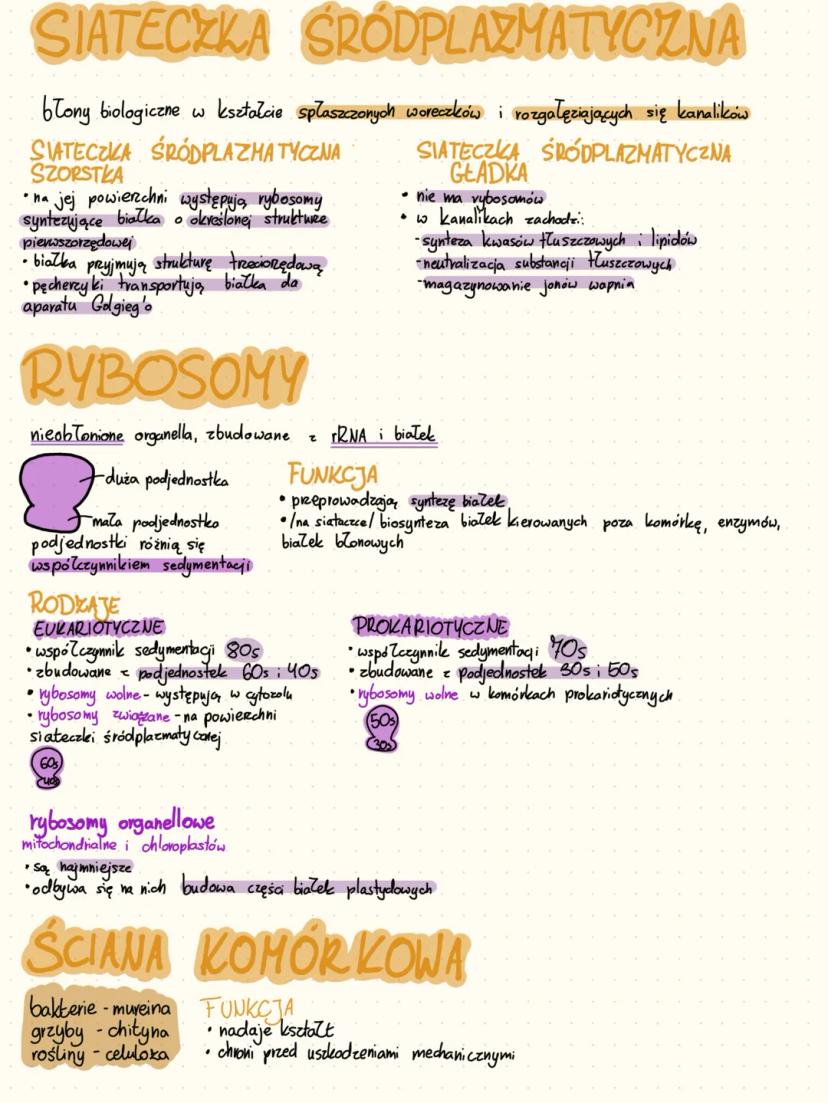 SIATECZKA ŚRÓDPLAZMATYCZNA
błony biologiczne w kształcie spłaszczonych woreczków i rozgałęziających się kanalików
SIATECZKA ŚRÓDPLAZMATYCZNA
SZORSTKA
• na jej powierzchni występują rybosomy
syntezujące białka o określonej strukturze
pierwszorzędowej
• białka przyjmują strukturę trzeciorzędową
• pęcherzyki transportują białka do
aparatu Golgieg'o
SIATECZKA ŚRÓDPLAZMATYCZNA
GŁADKA
• nie ma rybosomów
• w kanalikach zachodzi:
- synteza kwasów tłuszczowych i lipidów
- neutralizacja substancji tłuszczowych
- magazynowanie jonów wapnia
RYBOSOMY
nieobłonione organella, zbudowane z rRNA i białek
duża podjednostka
mała podjednostko
podjednostki różnią się
współczynnikiem sedymentacji
FUNKCJA
• przeprowadzają syntezę białek
• /na siateczce/ biosynteza białek kierowanych poza komórkę, enzymów,
białek błonowych
RODZAJE
EUKARIOTYCZNE
• współczynnik sedymentacji 80s
• zbudowane z podjednostek 60s i 40s
• rybosomy wolne - występują w cytozolu
• rybosomy związane - na powierzchni
siateczki śródplazmatycznej
60s
40s
PROKARIOTYCZNE
• współczynnik sedymentacji 70s
• zbudowane z podjednostek 30s i 50s
• rybosomy wolne w komórkach prokariotycznych
50s
30s
rybosomy organellowe
mitochondrialne i chloroplastów
• są najmniejsze
• odbywa się na nich budowa części białek plastydowych
ŚCIANA KOMÓRKOWA
bakterie - mureina
grzyby - chityna
rośliny - celuloza
FUNKCJA
• nadaje kształt
• chroni przed uszkodzeniami mechanicznymi